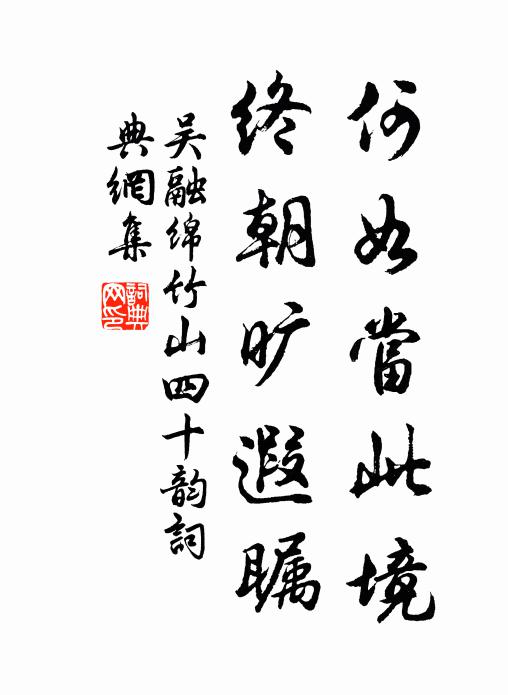 何如當此境
終朝旷遐瞩
吴融绵竹山四十韵詞
典網集
詞典
网印